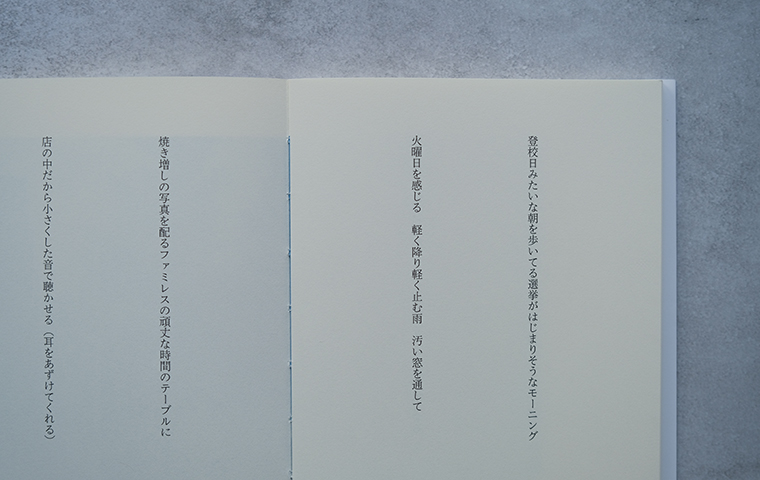 登校日みたいな朝を歩いてる選挙がはじまりそうなモーニング
火曜日を感じる　軽く降り軽く止む雨　汚い窓を通して
焼き増しの写真を配るファミレスの頑丈な時間のテーブルに
店の中だから小さくした音で聴かせる（耳をあずけてくれる）